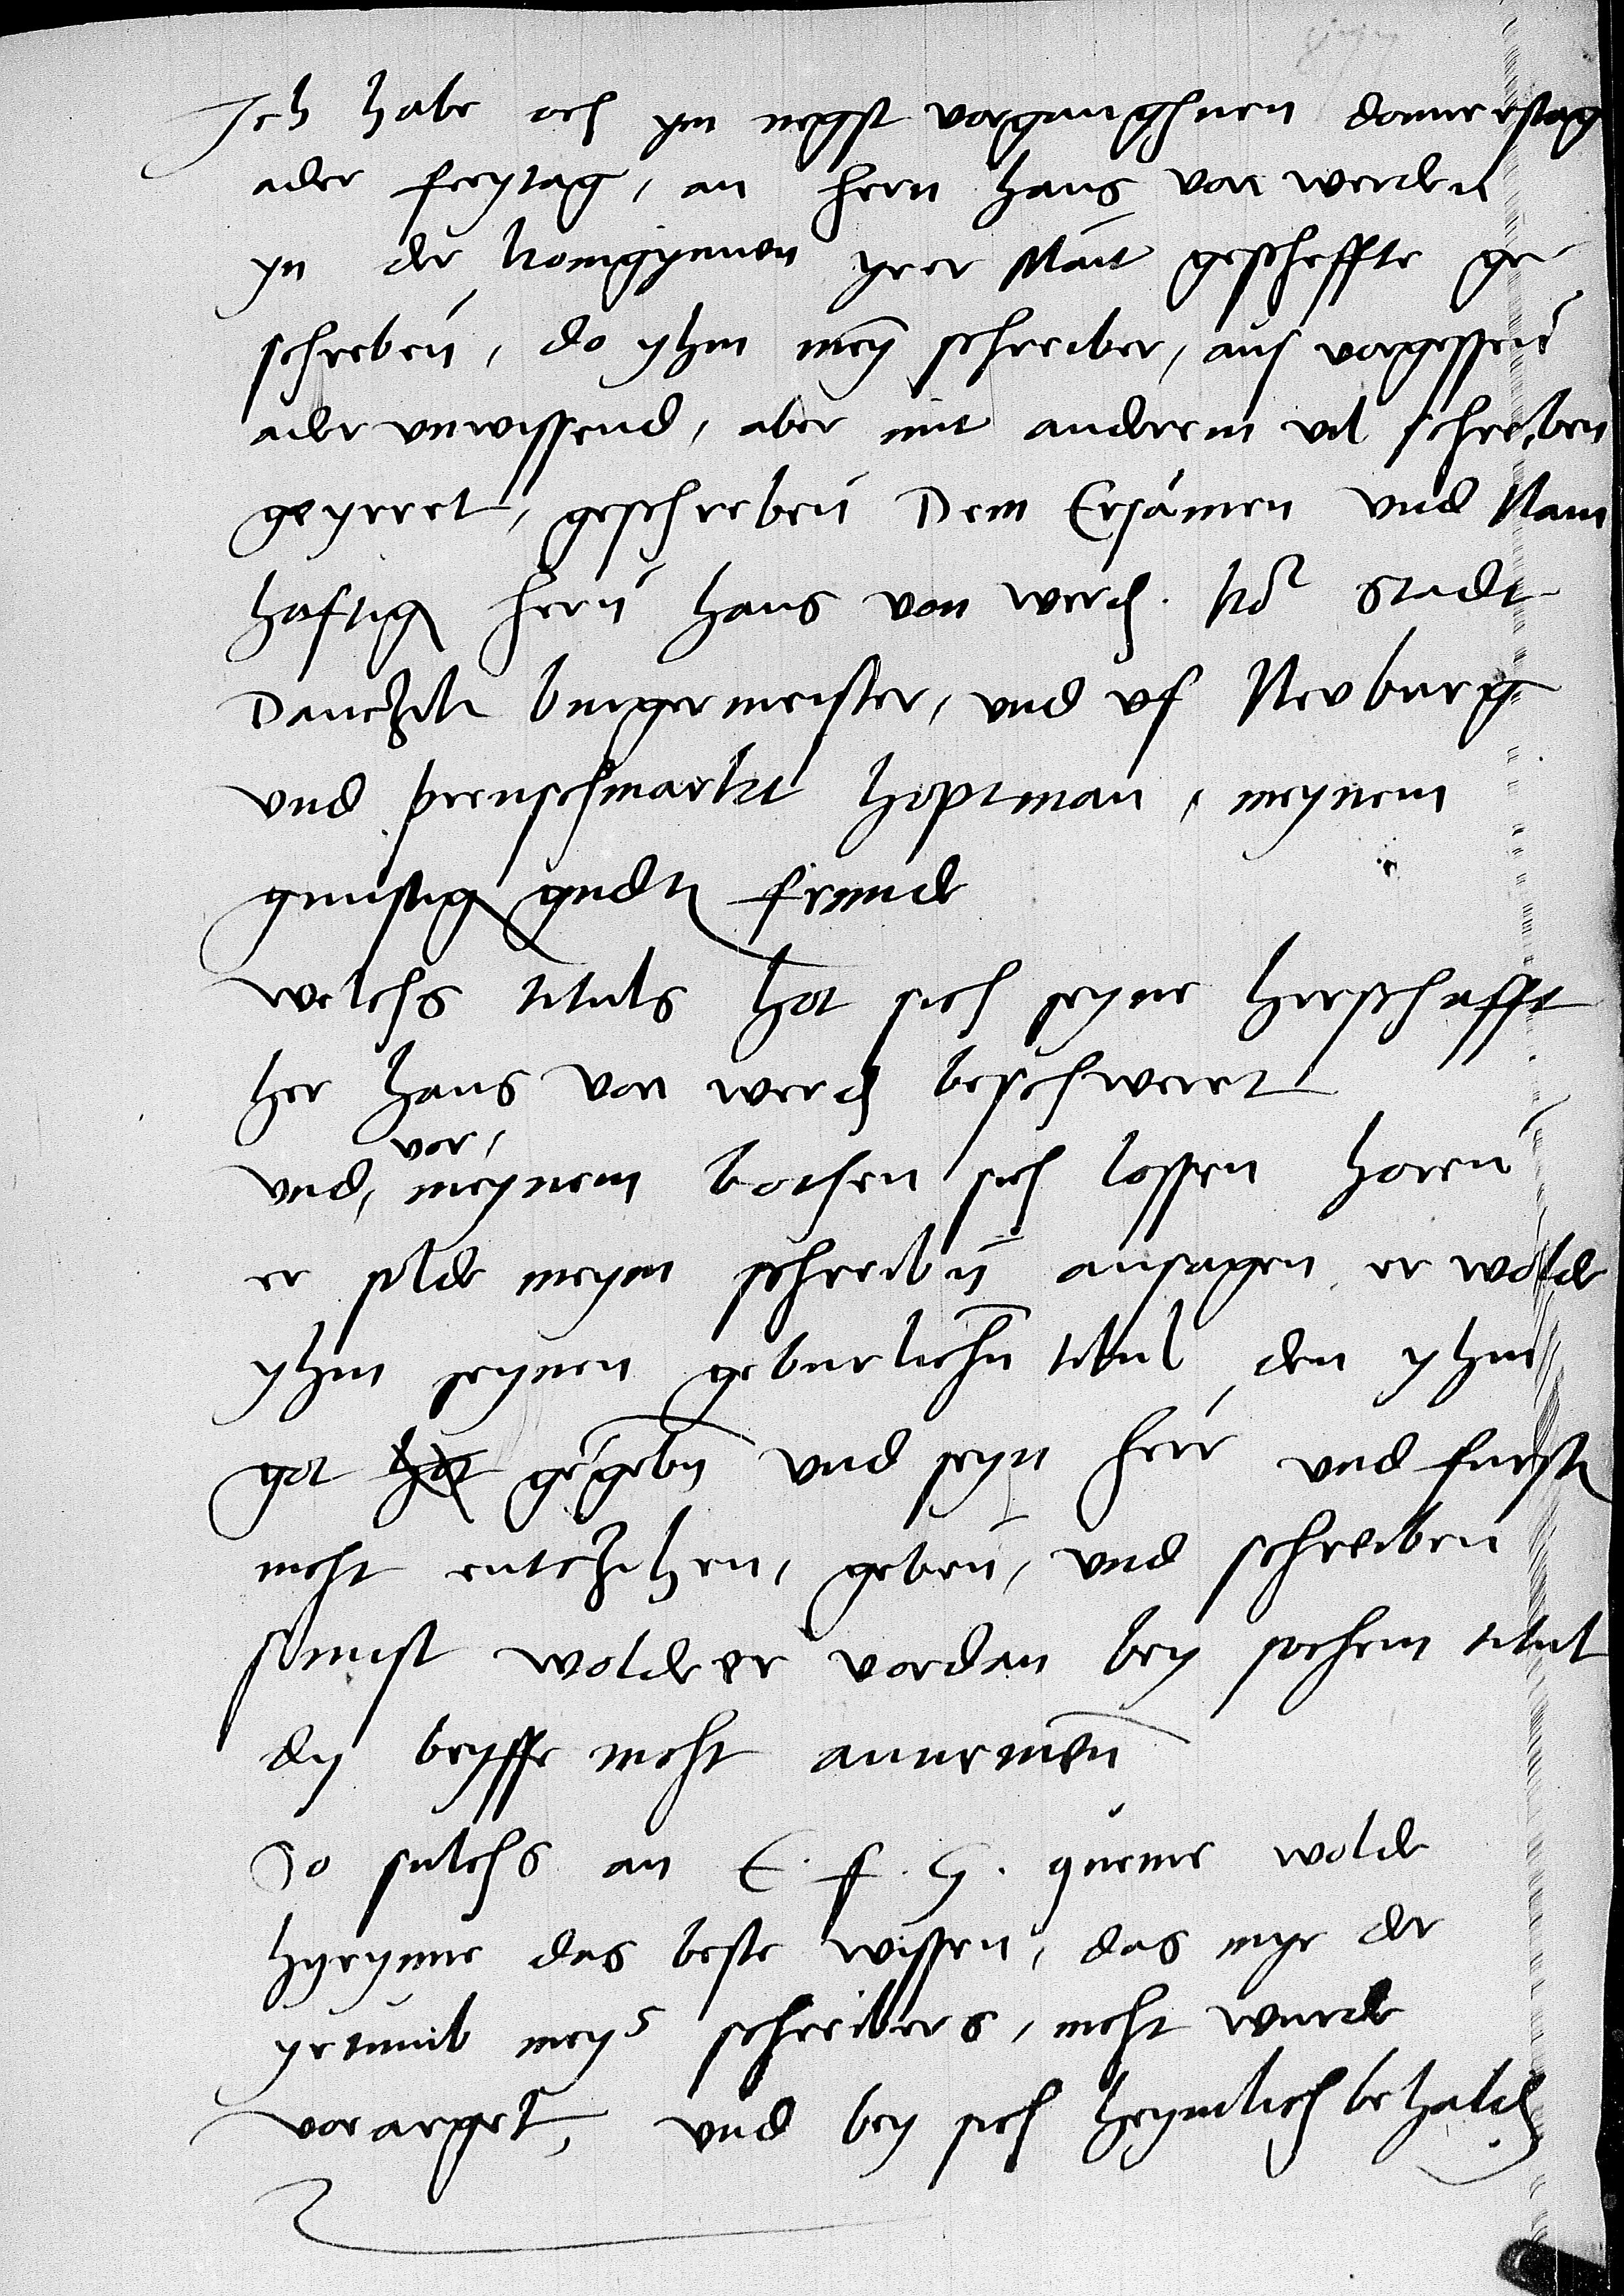 Ich habe och ym negst vorganghnen donnerstag
ader freytag, an hern hans von werden
yn der konigynnen yrer Mait gescheffte ge
schreben, do yhm meyn schreiber, aus vorgessen
ader unwissend, aber mit anderem vil schreiben
geyrret, geschreben Dem Ersamen und Nam
haftigen hern hans von werden. ko stadt
Danczik burgermeister, und uf Neuburg
und preuschmarkt hoptman, meynem
gunstigen guden frunde
welchs tituls hot sich seyne herschafft
her hans von werden beschwert
und, vor, meynem bothen sich lossen horen
er solde meym schreiben ansagen er wolde
yhm seynen geburlichen titul, den yhm
got hot gegeben und seyn herr und furst
nicht entczihen, geben, und schreiben
sunst wolde er vordan bey sochem titul
dy bryffe nicht annemen
So sulchs an E. f. G. queme wolde
hyrynne das beste wissen, das mye der
yrtumb meyns schreibers, nicht wurde
vorarget, und bey sich heymlich behalden